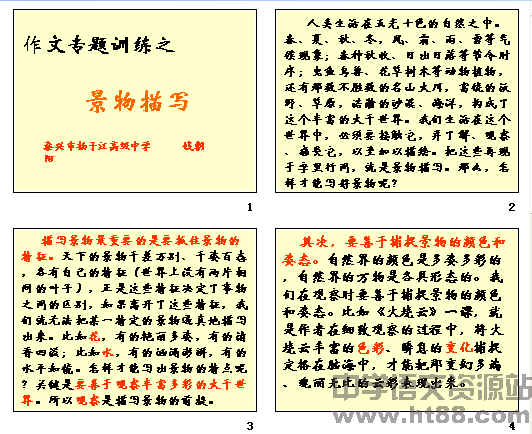 作文专题训练之
景物描写
泰兴市扬子江高级中学 钱朝阳
1
人类生活在五光十色的自然之中。
春、夏、秋、冬，风、霜、雨、雪等气
候现象；春种秋收、日出日落等节令时
序；虫鱼鸟兽、花草树木等动物植物，
还有那数不胜数的名山大川，富饶的沃
野、草原，浩瀚的沙漠、海洋，构成了
这个丰富的大千世界。我们生活在这个
世界中，必须要接触它，并了解、观察
、感受它，以至加以描绘。把这些再现
于字里行间，就是景物描写。那么，怎
样才能写好景物呢？
2
描写景物最重要的是要抓住景物的
特征。天下的景物千差万别、千姿百态
，各有自己的特征（世界上没有两片相
同的叶子），正是这些特征决定了事物
之间的区别，如果离开了这些特征，我
们就无法把某一特定的景物逼真地描写
出来。比如花，有的艳丽多姿，有的清
香四溢；比如水，有的汹涌澎湃，有的
水平如镜。怎样才能写出景物的特点呢
？关键是要善于观察丰富多彩的大千世
界。所以观察是描写景物的前提。
3
其次，要善于捕捉景物的颜色和
姿态。自然界的颜色是多姿多彩的
，自然界的万物是各具形态的。我
们在观察时要善于捕捉景物的颜色
和姿态。比如《火烧云》一课，就
是作者在细致观察的过程中，将火
烧云丰富的色彩、瞬息的变化捕捉
定格在脑海中，才能把那变幻多端
、绚丽无比的云彩表现出来。
4
中学语文资源站
www.ht88.com